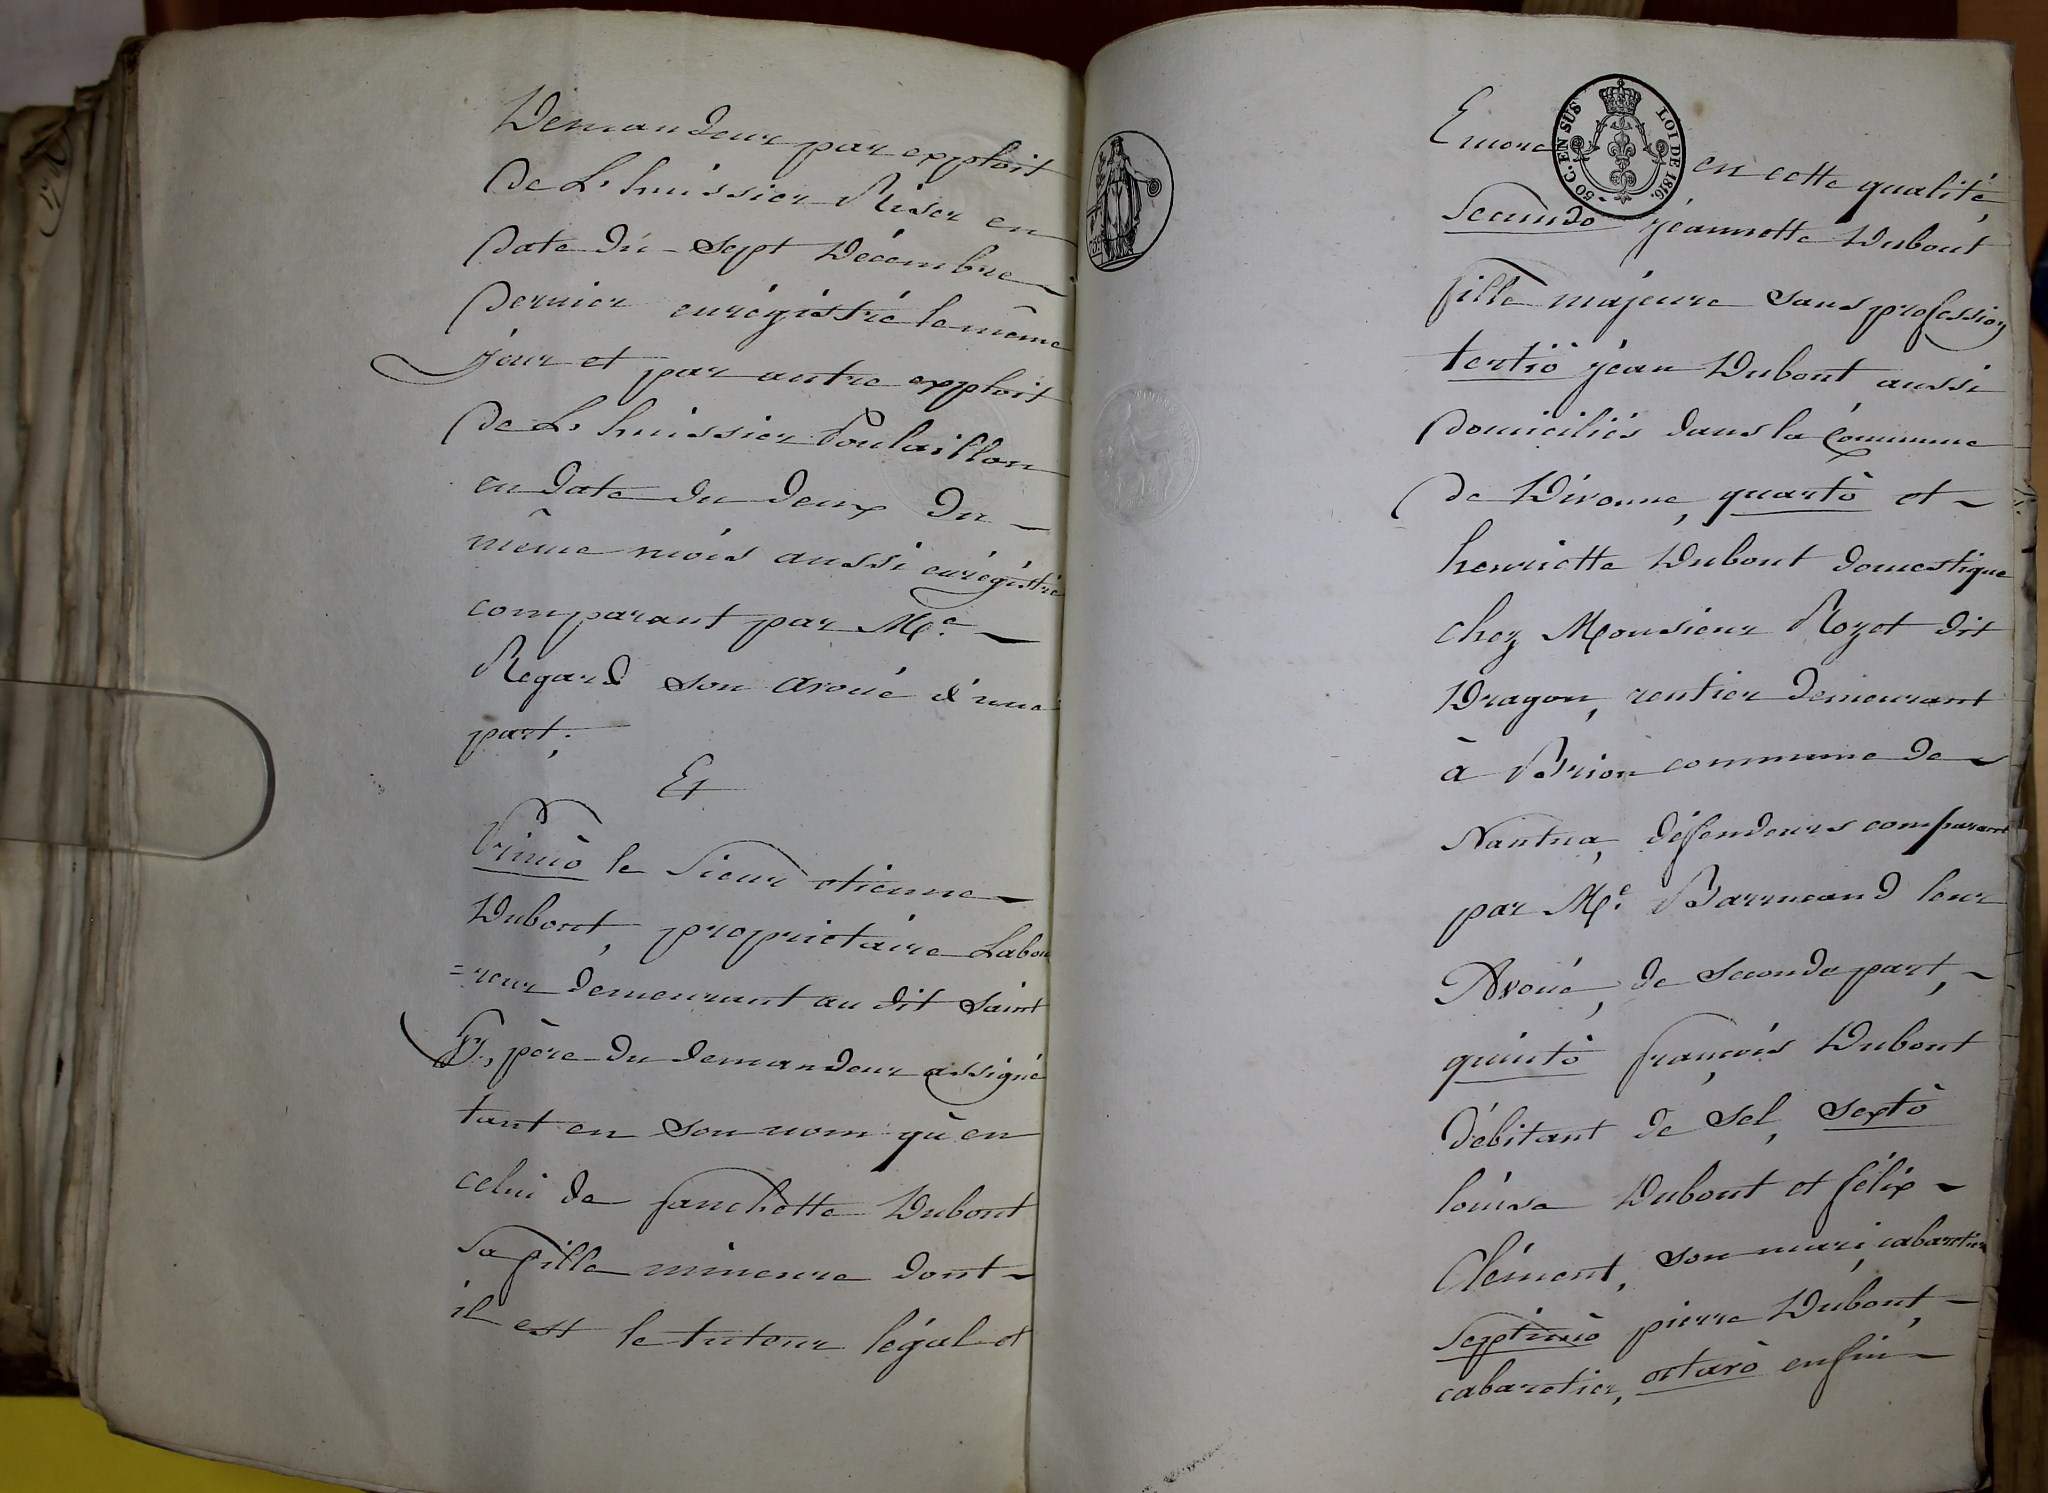 Demandeur par exploit
de L'huissier Riser en
date du sept Décembre
dernier enrégistré le même
jour et par autre exploit
de L'huissier Poulaillon
en date du deux du
même mois aussi enrégistré
comparant par Me.
Regard son avoué d'une
part;
Et
Primò le Sieur etienne
Dubout, propriétaire Labou
=reur demeurant au dit Saint
père du demandeur assigné
tant en son nom qu'en
celui de fanchette Dubout
sa fille mineure dont
il est le tuteur légal et
50 C. EN SUS
LOI DE 1816.
Encore en cette qualité,
Secundo jéannette Dubout
fille majeure sans profession
tertiò jéan Dubout aussi
domiciliés dans la Commune
de Divonne, quartò et
henriette Dubout domestique
chez Monsieur Rozet dit
Dragon, rentier demeurant
à Brion commune de
Nantua, défendeurs comparant
par Me. Barmeand leur
Avoué, de seconde part,
quintò françois Dubout
débitant de sel, sextò
loüise Dubout et félix
Clément, son mari, cabaretier
septimò pierre Dubout,
cabaretier, octavò enfin